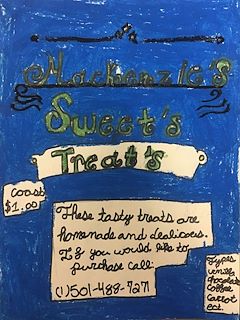 Mackenzie's
Sweet's
Treat's
Coast
$1.00
These tasty treats are
homemade and dealicoes.
If you would like to
purchase call:
(1)501-488-7271
Types
vinilla
chocolate
coffee
Carrot
ect.